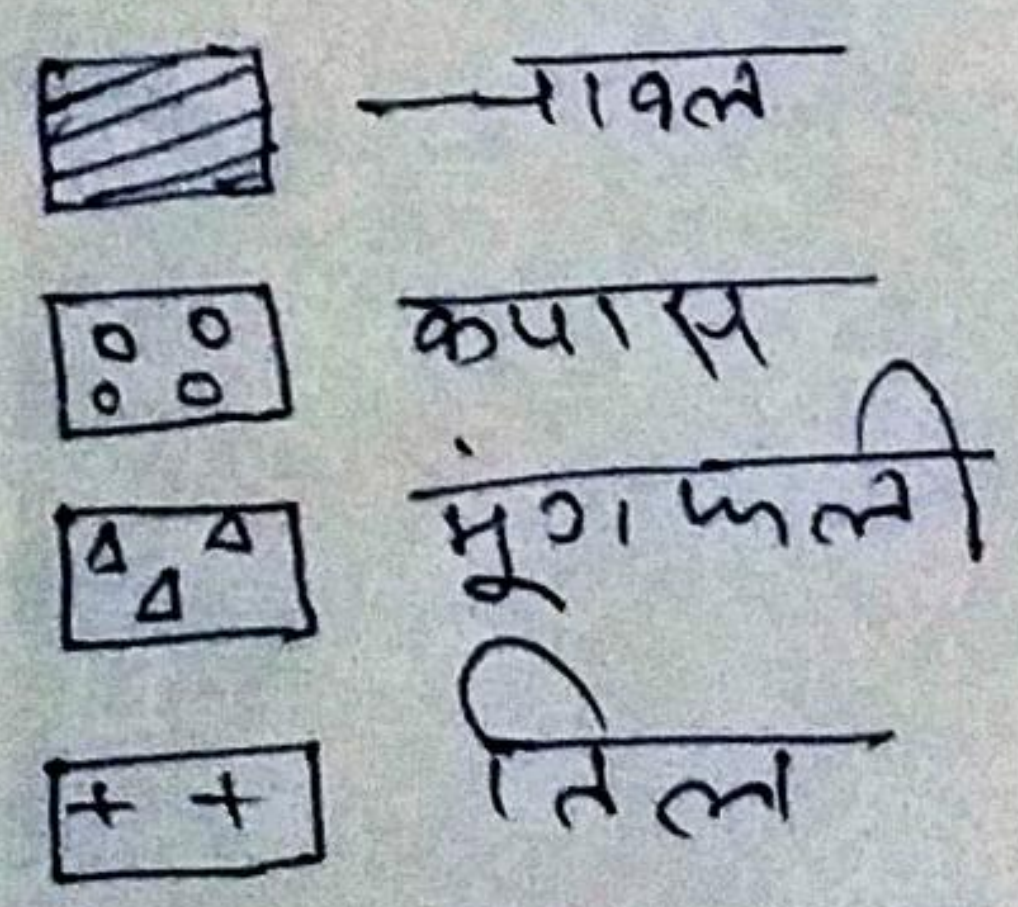 चावल
कपास
मूंगफली
तिल